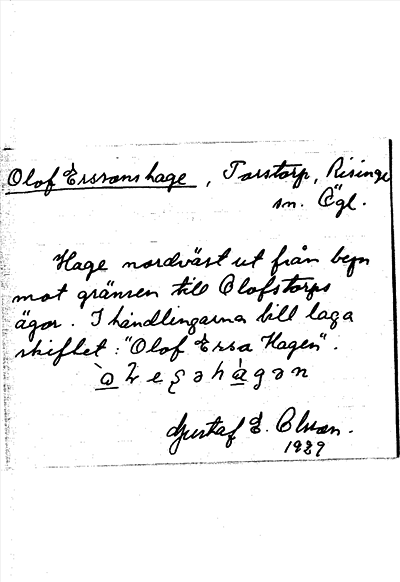 Olof Erssons hage, Torstorp, Risinge
sn. Ögl.
Hage nordväst ut från byn
mot gränsen till Olofstorps
ägor. I handlingarna till laga
skiftet: "Olof Ersa Hagen".
Gustaf E. Olsson.
1929